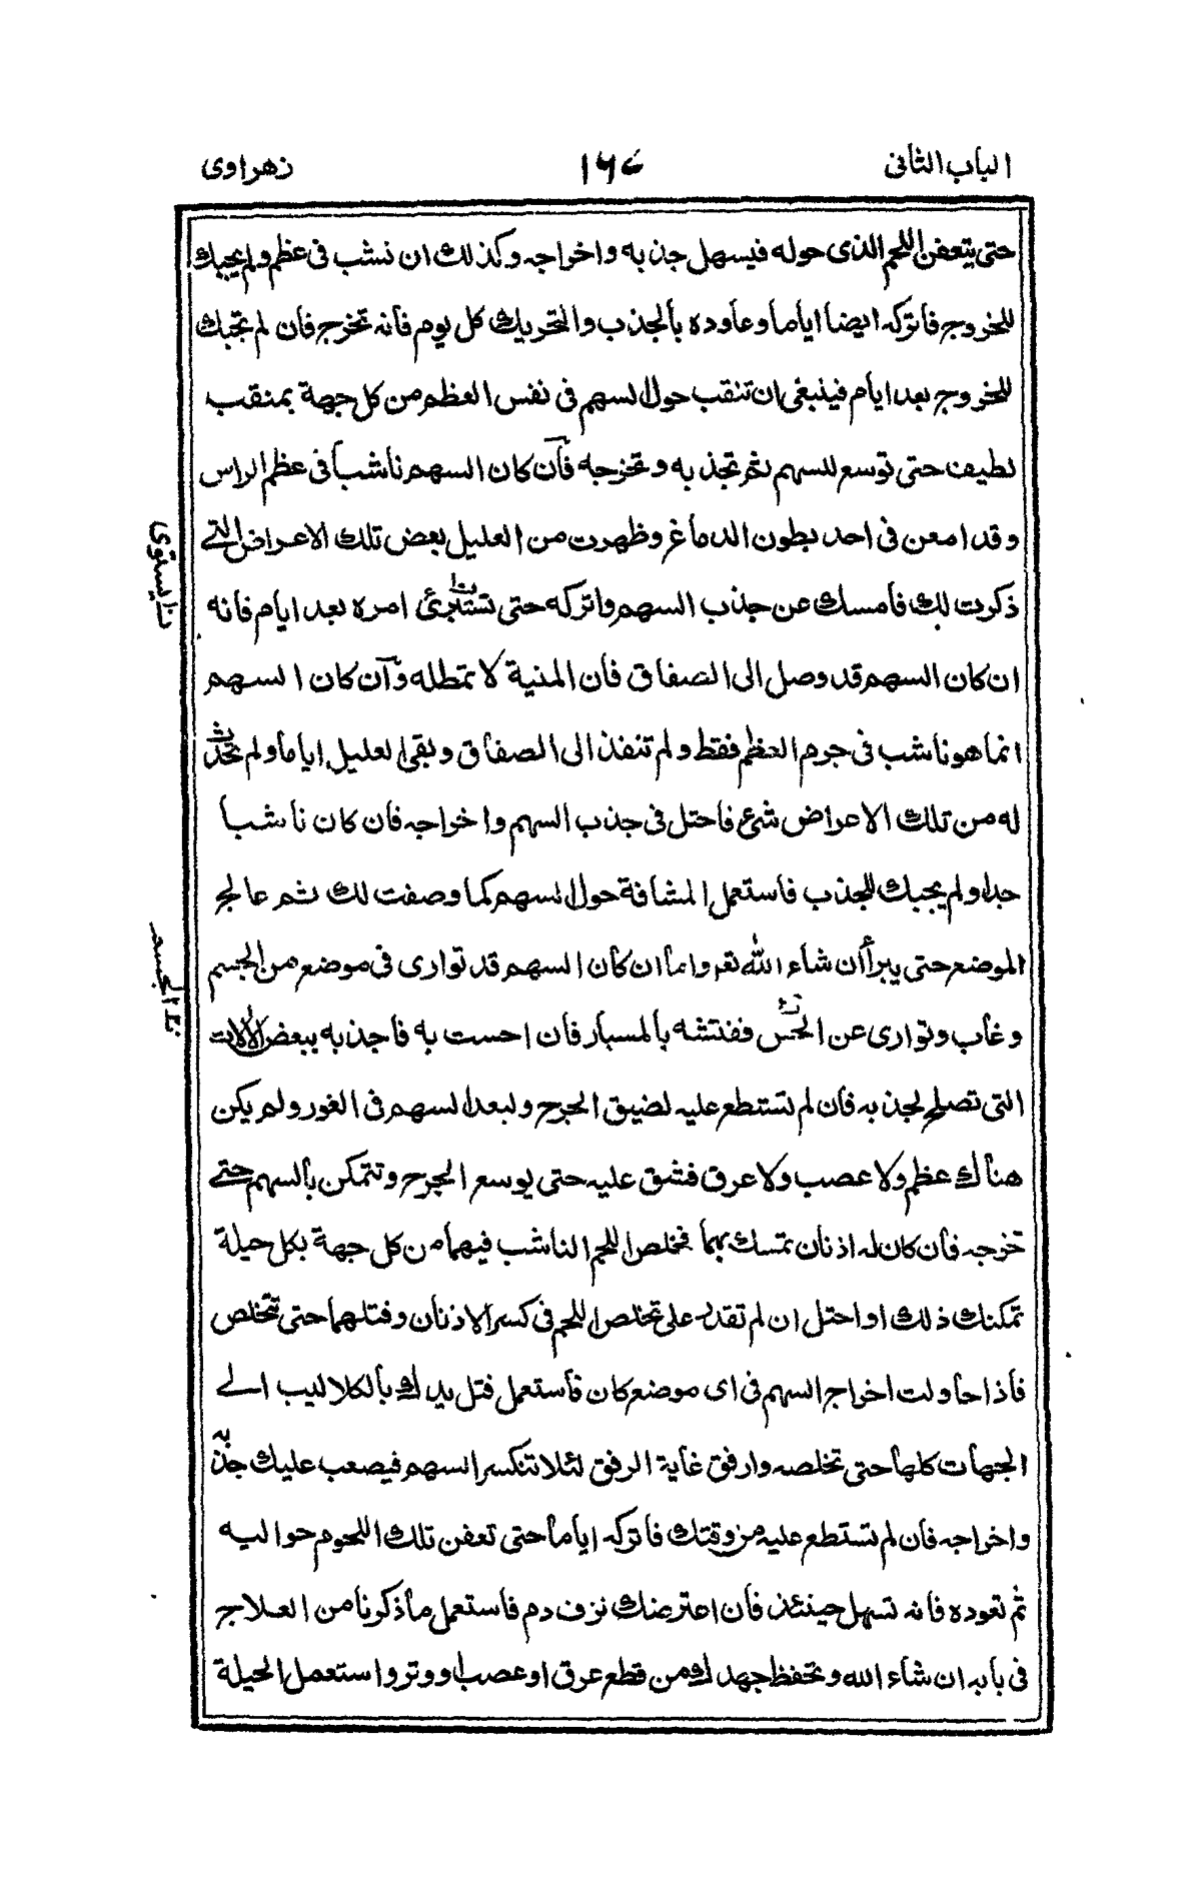 الباب الثانى
١٦٧
زهراوى
حتى يتعفن اللحم الذى حوله فيسهل جذبه واخراجه وكذلك ان نشب فى عظم ولم يجبك
للخروج فأتركه ايضا اياما وعاوده بالجذب والتحريك كل يوم فأنه تخرج فان لم تجبك
للخروج بعد ايام فينبغى ان تنقب حول السهم فى نفس العظم من كل جهة بمنقب
لطيف حتى توسع للسهم ثم تجذبه وتخرجه فان كان السهم ناشبا فى عظم الراس
وقد امعن فى احد بطون الدماغ وظهرت من العليل بعض تلك الاعراض التے
ذكرت لك فأمسك عن جذب السهم واتركه حتى تستبرئ امره بعد ايام فأنه
ان كان السهم قد وصل الى الصفاق فأن المنية لا تمطله وان كان السهم
انما هو ناشب فى جرم العظم فقط ولم تنفذ الى الصفاق وبقى العليل اياما ولم تحدث
له من تلك الاعراض شئ فاحتل فى جذب السهم واخراجه فان كان ناشبا
جدا ولم يجبك للجذب فأستعمل المشافة حول السهم كما وصفت لك ثم عالج
الموضع حتى يبرأ أن شاء الله تعر واما ان كان السهم قد توارى فى موضع من الجسم
وغاب وتوارى عن الحس ففتشه بالمسبار فان احست به فأجذبه ببعض الألات
التى تصلح لجذبه فأن لم تستطع عليه لضيق الجرح ولبعد السهم فى الغور ولم يكن
هناك عظم ولا عصب ولا عرق فشق عليه حتى يوسع الجرح وتتمكن بالسهم حتے
تخرجه فأن كان له اذنان تمسك بهما فخلص اللحم الناشب فيهما من كل جهة بكل حيلة
تمكنك ذلك او احتل ان لم تقدر على تخلص اللحم فى كسر الاذنان وفتلهما حتى تتخلص
فأذا حاولت اخراج السهم فى اى موضع كان فأستعمل فتل يدك بالكلاليب الے
الجهات كلها حتى تخلصه وارفق غأية الرفق لئلا تنكسر السهم فيصعب عليك جذبه
واخراجه فأن لم تستطع عليه من وقتك فأتركه اياما حتى تعفن تلك اللحوم حواليه
ثم تعوده فانه تسهل حينئذ فأن اعترضك نزف دم فأستعمل ما ذكرنا من العلاج
فى بابه ان شاء الله وتحفظ جهدك من قطع عرق او عصب او وتر واستعمل الحيلة
نـ يستوى
نـ الجسم